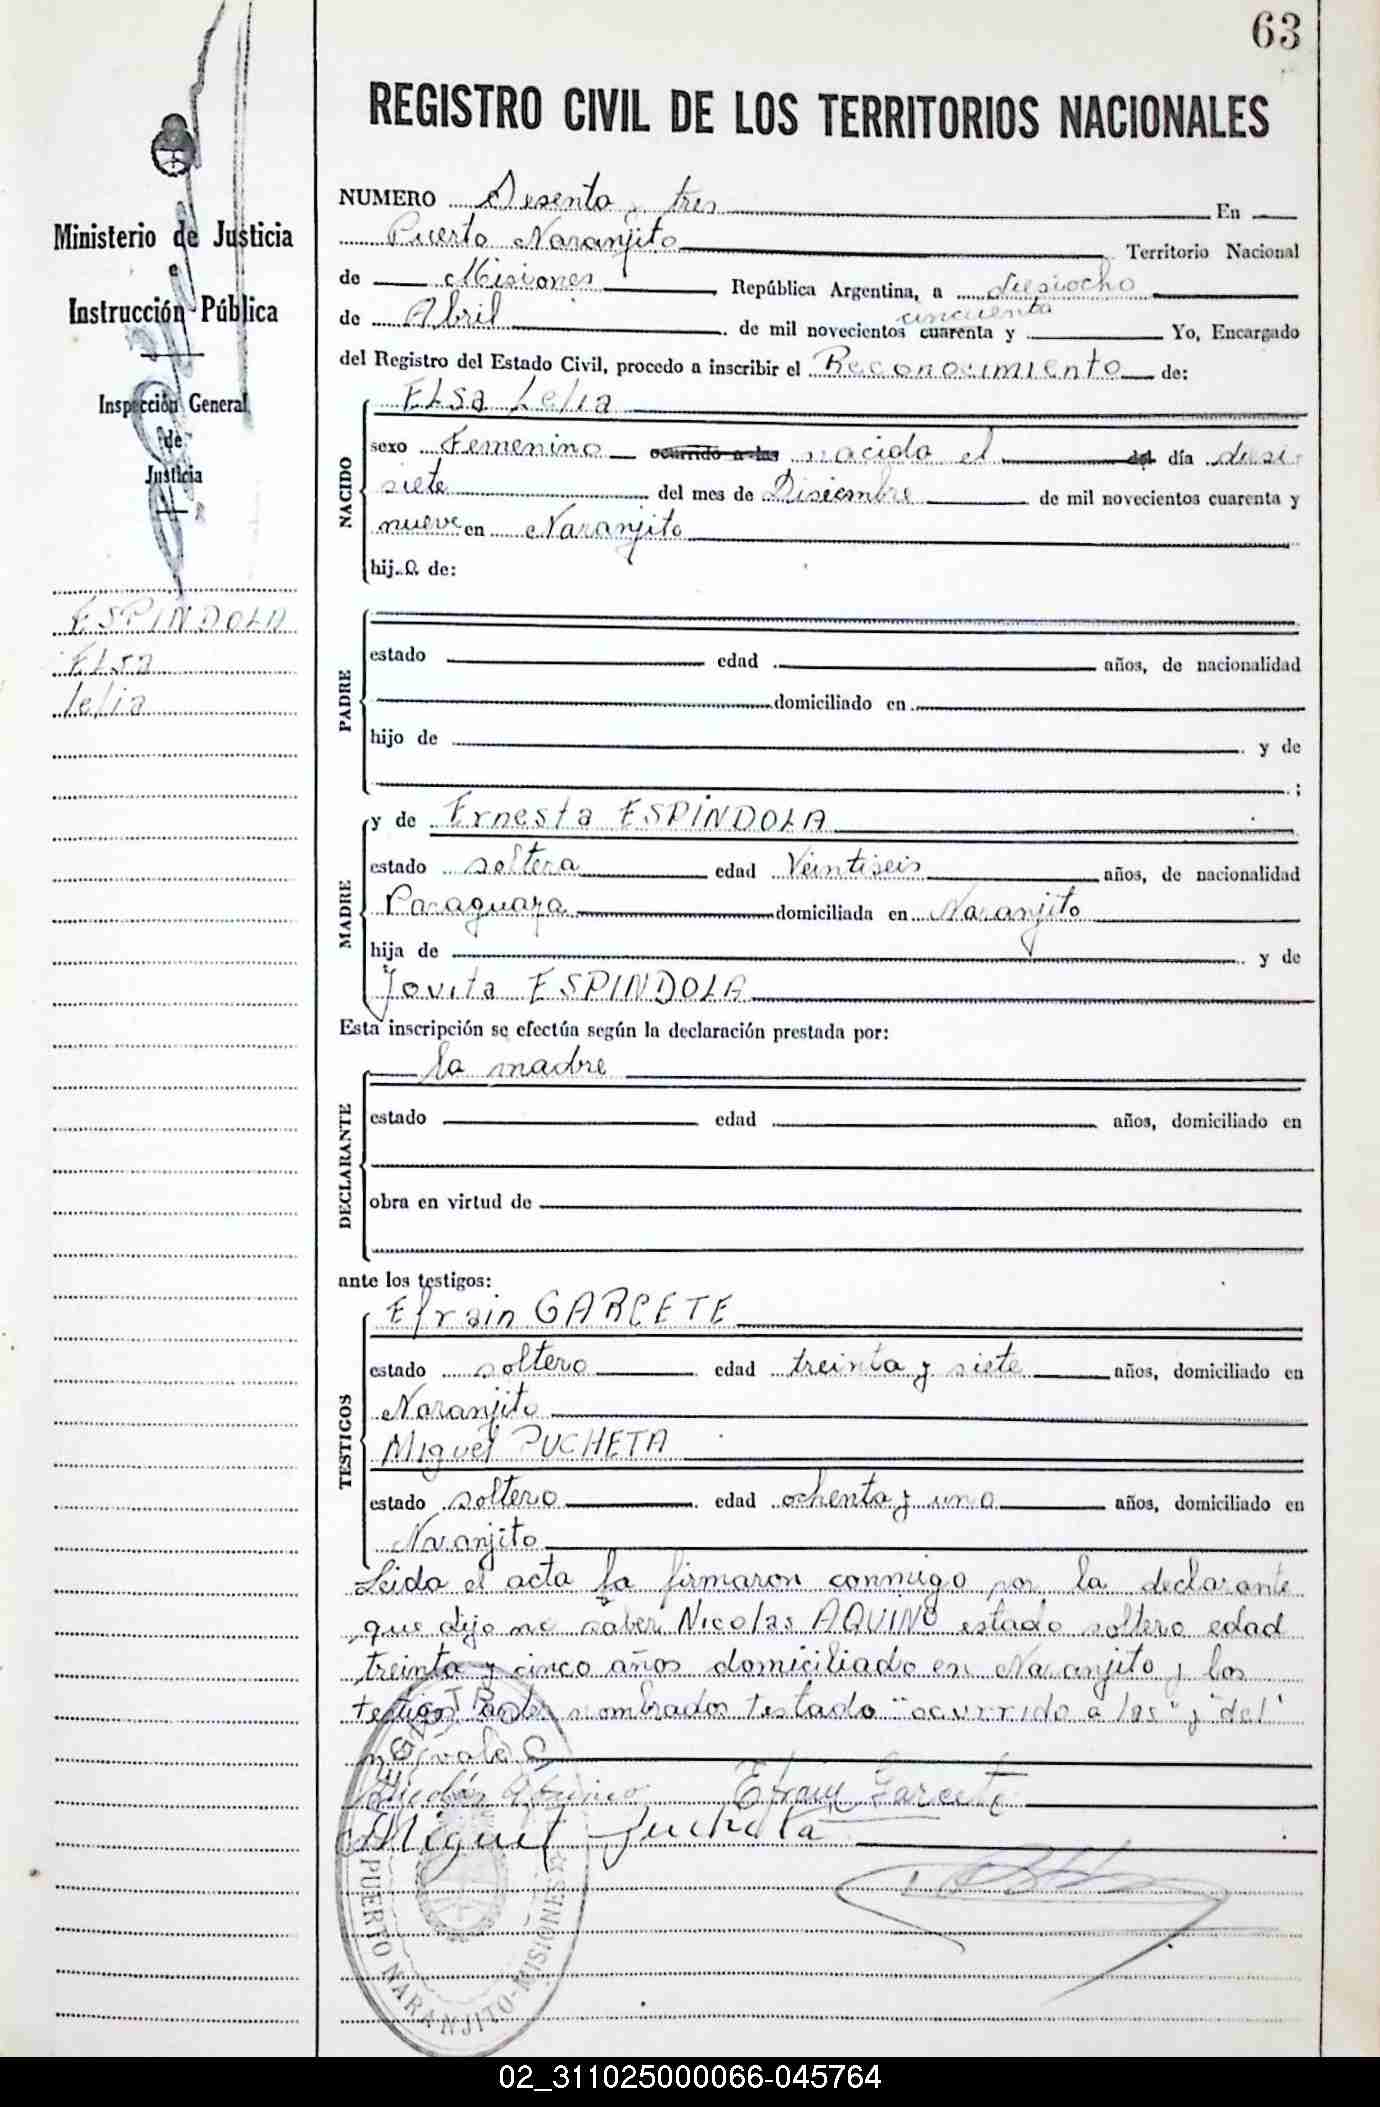 63
REGISTRO CIVIL DE LOS TERRITORIOS NACIONALES
Ministerio de Justicia
e
Instrucción Pública
Inspección General
de
Justicia
ESPINDOLA
Elsa
lelia
NUMERO Sesenta y tres En
Puerto Naranjito Territorio Nacional
de Misiones República Argentina, a diesiocho
cincuenta
de Abril de mil novecientos cuarenta y Yo, Encargado
del Registro del Estado Civil, procedo a inscribir el Reconocimiento de:
NACIDO
Elsa Lelia
sexo Femenino ocurrido a las nacida el del día diesi
siete del mes de Disiembre de mil novecientos cuarenta y
nueve en Naranjito
hij a de:
PADRE
estado edad años, de nacionalidad
domiciliado en
hijo de y de
;
MADRE
y de Ernesta ESPINDOLA
estado soltera edad Veintiseis años, de nacionalidad
Paraguaya domiciliada en Naranjito
hija de y de
Jovita ESPINDOLA
Esta inscripción se efectúa según la declaración prestada por:
DECLARANTE
la madre
estado edad años, domiciliado en
obra en virtud de
ante los testigos:
TESTIGOS
Efrain GARCETE
estado soltero edad treinta y siete años, domiciliado en
Naranjito
Miguel PUCHETA
estado soltero edad ochenta y uno años, domiciliado en
Naranjito
Leida el acta la firmaron conmigo por la declarante
que dijo no saber Nicolas AQUINO estado soltero edad
treinta y cinco años domiciliado en Naranjito y los
testigos antes nombrados testado "ocurrido a las" y "del"
no vale
Nicolás Aquino Efrain Garcete
Miguel Pucheta
PUERTO NARANJITO-MISIONES
02_311025000066-045764